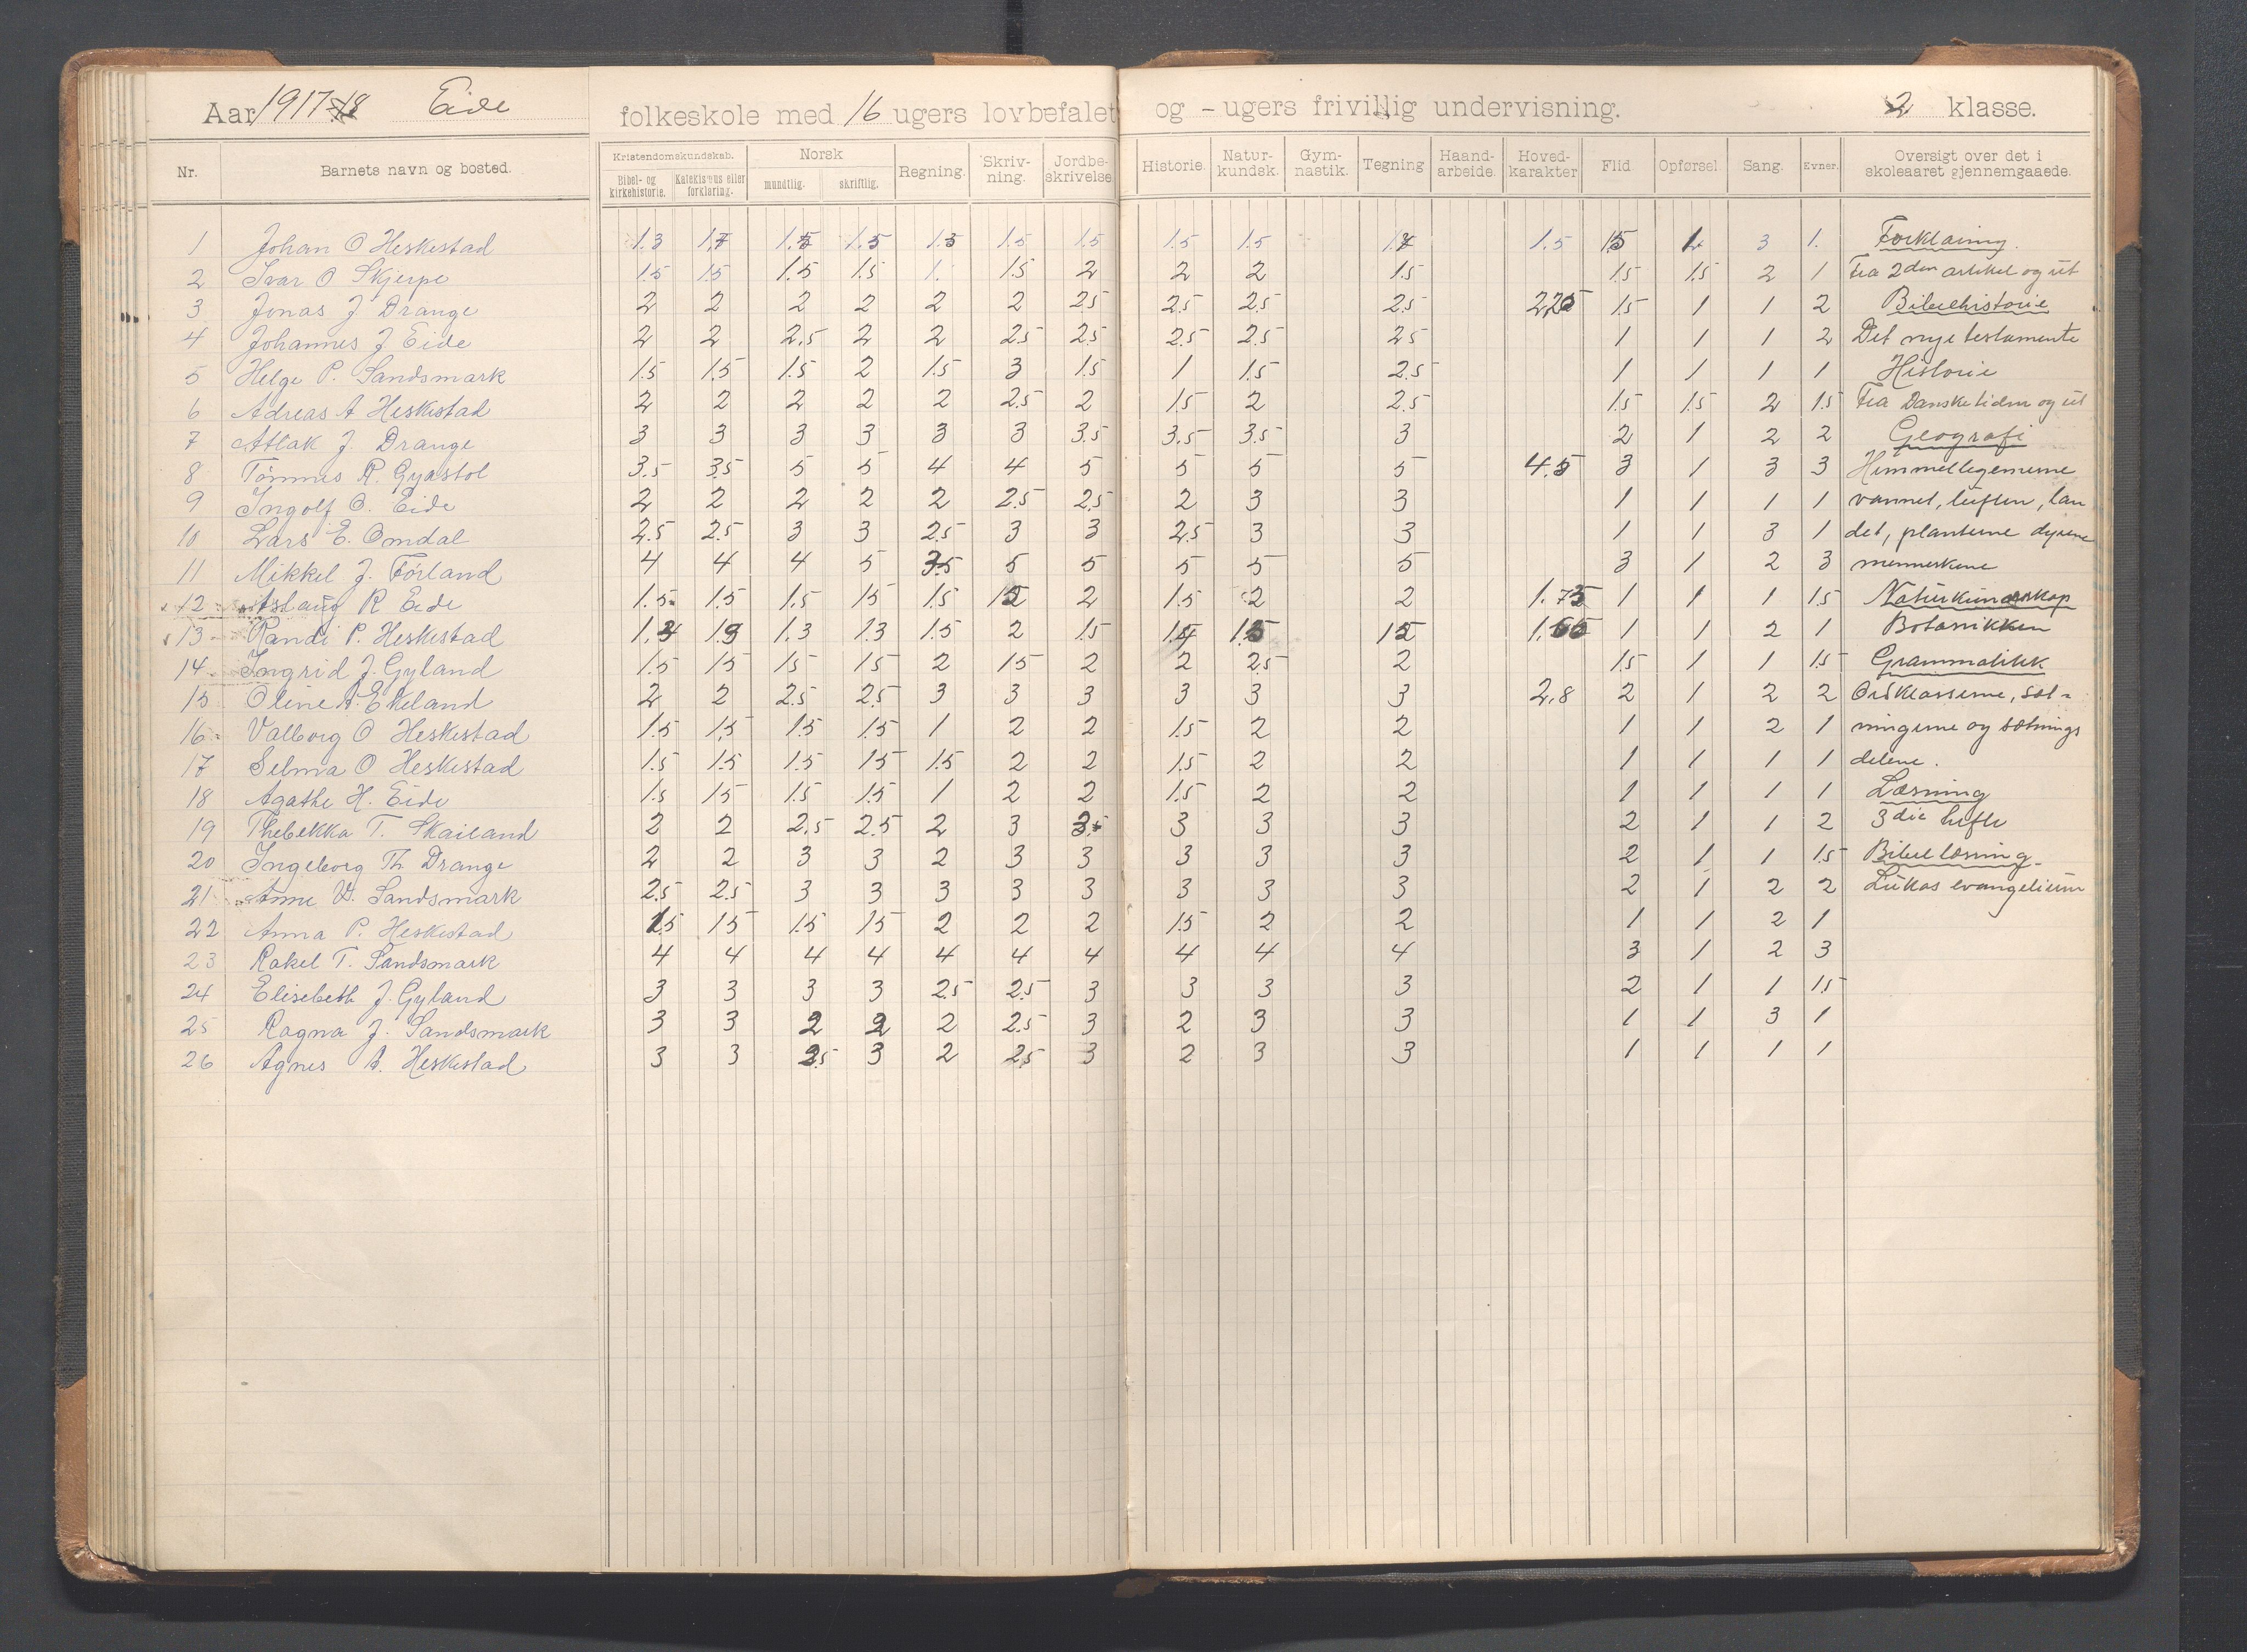 Aar 1917-18 Eide folkeskole med 16 ugers lovbefalet og - ugers frivillig undervisning. 2 klasse.
Nr. | Barnets navn og bosted. | Kristendomskundskab. Bibel- og kirkehistorie. | Katekismus eller forklaring. | Norsk mundtlig. | skriftlig. | Regning. | Skriv-ning. | Jordbe-skrivelse. | Historie. | Natur-kundsk. | Gym-nastik. | Tegning | Haand-arbeide. | Hoved-karakter | Flid | Opførsel | Sang. | Evner. | Oversigt over det i skoleaaret gjennemgaaede.
1 Johan O Heskestad 1.3 1.7 1.5 1.5 1.5 1.5 1.5 1.5 1.5 1.5 1.5 1 3 1. Forklaring.
2 Ivar O Skjerpe 1.5 1.5 1.5 1.5 1. 1.5 2 2 2 1.5 1.5 1.5 2 1 Fra 2den artikel og ut
3 Jonas J Drange 2 2 2 2 2 2 2.5 2.5 2.5 2.5 1.5 1 1 2 Bibelhistorie
4 Johannes J Eide 2 2 2.5 2 2 2.5 2.5 2.5 2.5 2.5 1 1 1 2 Det nye testamente
5 Helge P. Sandsmark 1.5 1.5 1.5 2 1.5 3 1.5 1 1.5 2.5 1 1 1 1 Historie
6 Adreas A Heskestad 2 2 2 2 2 2.5 2 1.5 2 2.5 1.5 1.5 2 1.5 Fra Dansketiden og ut
7 Atlak J. Drange 3 3 3 3 3 3 3.5 3.5 3.5 3 2 1 2 2 Geografi
8 Tønnes R. Gyastol 3.5 3.5 5 5 4 4 5 5 5 5 4.5 3 1 3 3 Himmellegemerne
9 Ingolf O. Eide 2 2 2 2 2 2.5 2.5 2 3 3 1 1 1 1 vannet, luften, lan
10 Lars E. Omdal 2.5 2.5 3 3 2.5 3 3 2.5 3 3 1 1 3 1 det, planterne dyrene
11 Mikkel J. Førland 4 4 4 5 3.5 5 5 5 5 5 3 1 2 3 menneskene
12 Aslaug R Eide 1.5 1.5 1.5 1.5 1.5 2 1.5 2 2 1.75 1 1 1 1.5 Naturkundskap
13 Randi P. Heskestad 1.3 1.3 1.3 1.5 2 1.5 1.5 1 1 2 1 Botanikken
14 Ingrid J. Gyland 1.5 1.5 1.5 1.5 2 1.5 2 2 2.5 2 1.5 1 1 1.5 Grammatikk
15 Oline A. Ekeland 2 2 2.5 2.5 3 3 3 3 3 3 2.8 2 1 2 2 Ordklasserne, sæt-
16 Valborg O Heskestad 1.5 1.5 1.5 1.5 1 2 2 1.5 2 2 1 1 2 1 ningerne og sætnings
17 Selma O Heskestad 1.5 1.5 1.5 1.5 1.5 2 2 1.5 2 2 1 1 1 1 delene.
18 Agathe H. Eide 1.5 1.5 1.5 1.5 1 2 2 1.5 2 2 1 1 1 1 Læsning
19 Thebekka T. Skailand 2 2 2.5 2.5 2 3 3 3 3 3 2 1 1 2 3die hefte
20 Ingeborg Th Drange 2 2 3 3 2 3 3 3 3 3 2 1 1 1.5 Bibellæsning.
21 Anne V. Sandsmark 2.5 2.5 3 3 3 3 3 3 3 3 2 1 2 2 Lukas evangelium
22 Anna P. Heskestad 1.5 1.5 1.5 1.5 2 2 2 1.5 2 2 1 1 2 1
23 Rakel T. Sandsmark 4 4 4 4 4 4 4 4 4 4 3 1 2 3
24 Elisebeth J. Gyland 3 3 3 3 2.5 2.5 3 3 3 3 2 1 1 1.5
25 Ragna J. Sandsmark 3 3 2 2 2 2.5 3 2 3 3 1 1 3 1
26 Agnes A. Heskestad 3 3 2.5 3 2 2.5 3 2 3 3 1 1 1 1